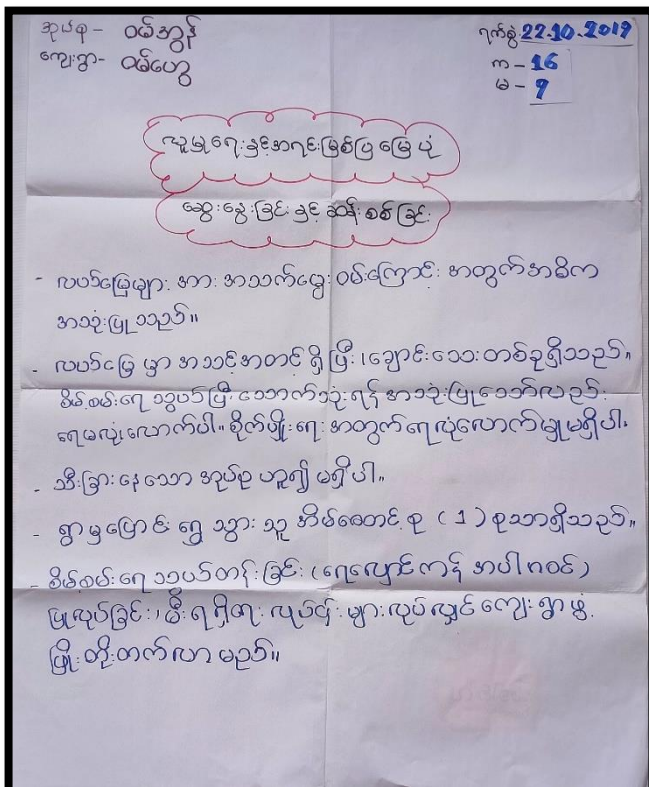 အုပ်စု - ဝမ်အွန် ရက်စွဲ 22.10.2019
ကျေးရွာ - ဝမ်ဟွေ က - 16
မ - 9
လူမှုရေးနှင့်အရင်းမြစ်ပြမြေပုံ
ဆွေးနွေးခြင်း နှင့် ဆန်းစစ်ခြင်း
- လယ်မြေများ အား အသက်မွေးဝမ်းကြောင်း အတွက်အဓိက
အသုံးပြုသည်။
- လယ်မြေမှာ အသင့်အတင့်ရှိပြီး ၊ချောင်းသေးတစ်ခုရှိသည်။
စိမ့်စမ်းရေသွယ်ပြီးသောက်သုံးရန် အသုံးပြုသော်လည်း
ရေမလုံလောက်ပါ။ စိုက်ပျိုးရေးအတွက်ရေလုံလောက်မှုမရှိပါ။
- သီးခြားနေသော အုပ်စု ဟူ၍ မရှိပါ။
- ရွာမှပြောင်းရွှေ့သွားသူ အိမ်ထောင်စု (1) စုသာရှိသည်။
- စိမ့်စမ်းရေသွယ်တန်းခြင်း (ရေလှောင်ကန် အပါဝင်)
ပြုလုပ်ခြင်း၊ မီးရရှိရေးလုပ်ငန်းများလုပ်လျှင်ကျေးရွာဖွံ့
ဖြိုးတိုးတက်လာမည်။